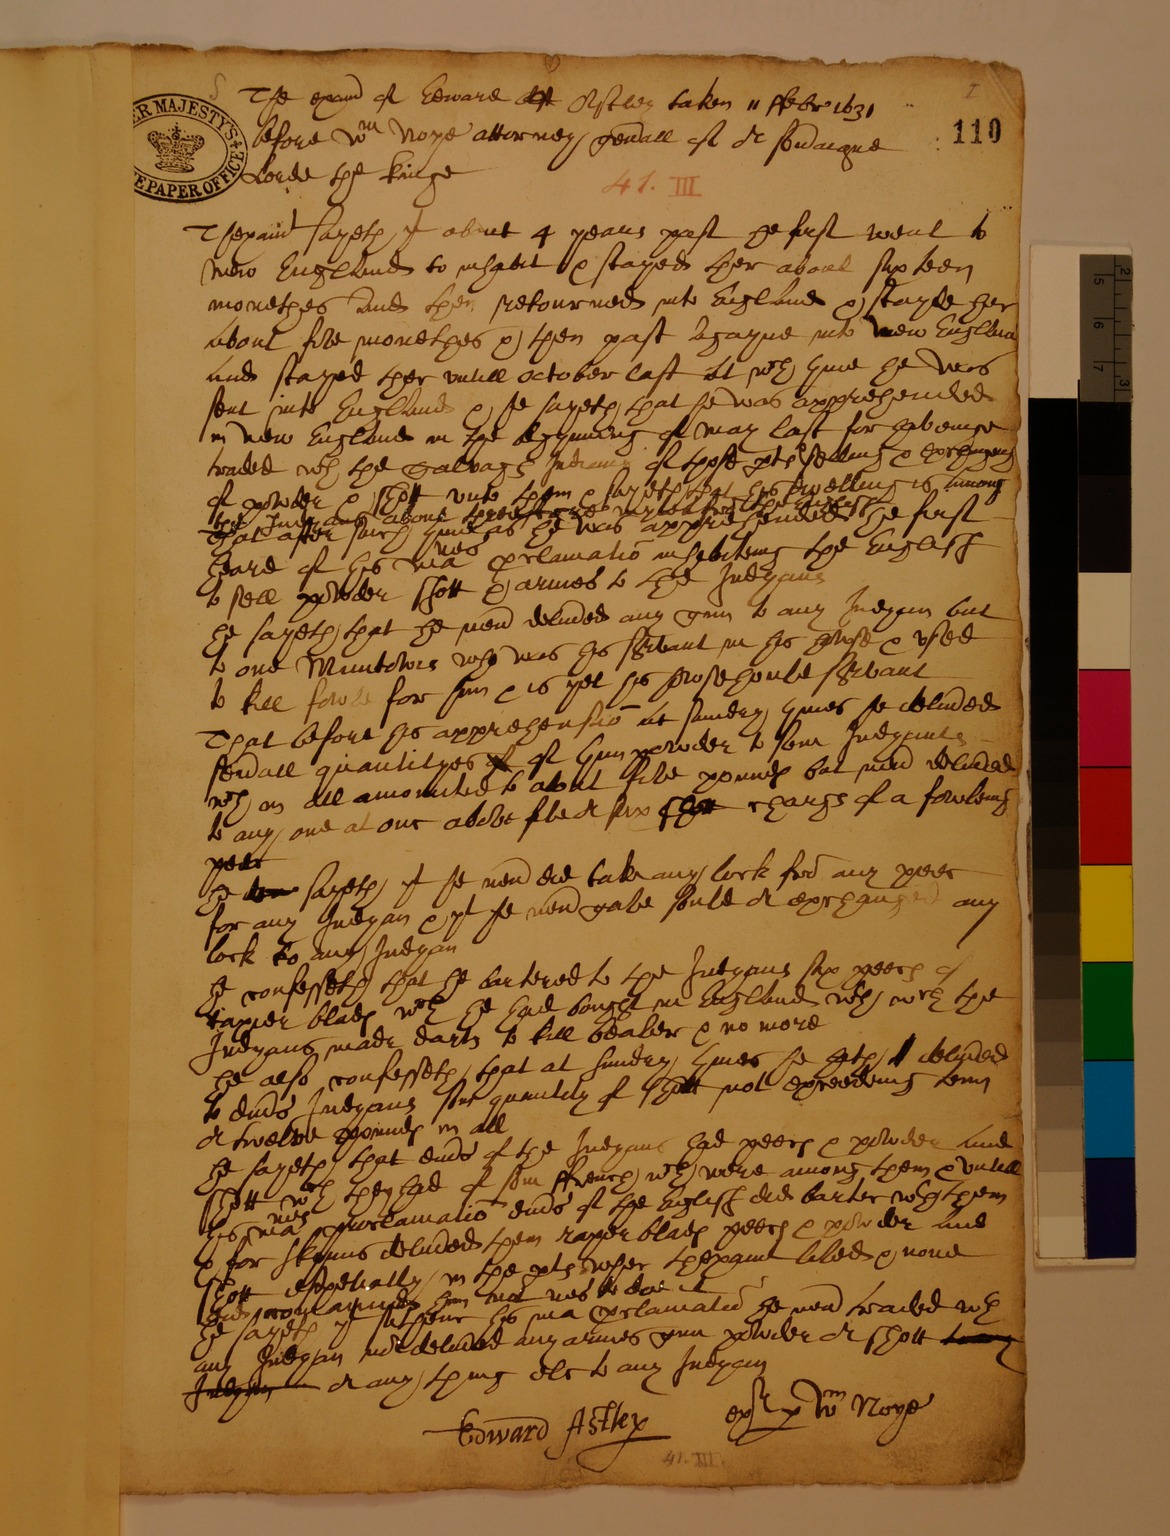 HER MAJESTY'S STATE PAPER OFFICE
I
110
The exam of Edward Astley taken 11 ffebr 1631
before Wm Noye attorney generall of or soveraigne
Lorde the kinge
41. III
Thexaint sayeth yt about 4 years past he first went to
new England to inhabit & stayed ther about sixteen
monethes and then retourned into England & stayde her
about five monethes & then past agayne into New England
and stayed ther untill october last at wch tyme he was
sent into England & he sayeth that he was apprehended
in new England in the begynning of may last for havinge
traded wth the Salvage Indians of those pts selling & exchanging
of powder & shott unto them & sayeth that his dwelling is among
the Indyans about
That after such tyme as he was apprehended he first
heard of his maties proclamatio inhibiting the English
to sell powder shott & armes to the Indyans
he sayeth that he never delivered any gun to any Indyan but
to one who was his servant in his house & used
to kill fowle for him & is yet his household servant
That before his apprehensio at sundry tymes he delivered
severall quantityes of gunpowder to som Indyans
wch in all amounted to about five pounds but never delivered
to any one at one above five or six shott charge of a fowling
peec
he sayeth yt he never did take any lock from any peec
for any Indyan & yt he never gave sould or exchanged any
lock to any Indyan
he confesseth that he bartered to the Indyans six peeces of
rapier blades wch he had bought in England wch the
Indyans made darts to kill beaver & no more
he also confesseth that at sundry tymes he hath delivered
to divers Indyans som quantity of shott not exceeding tenn
or twelve pounds in all
he sayeth that divers of the Indyans had peeces & powder and
shott wch they had of som ffrench wch were among them & untill
his maties proclamatio divers of the English did barter wth them
& for skynns delivered them rapier blades peeces & powder and
shott especially in the pts wher thexaint lived & none
did
he sayeth yt sithenc his maties proclamatio he never traded wth
any Indyan nor delivered any armes gun powder or shott
or any thing els to any Indyan
Edward Astley
exr p Wm Noye
41. III.